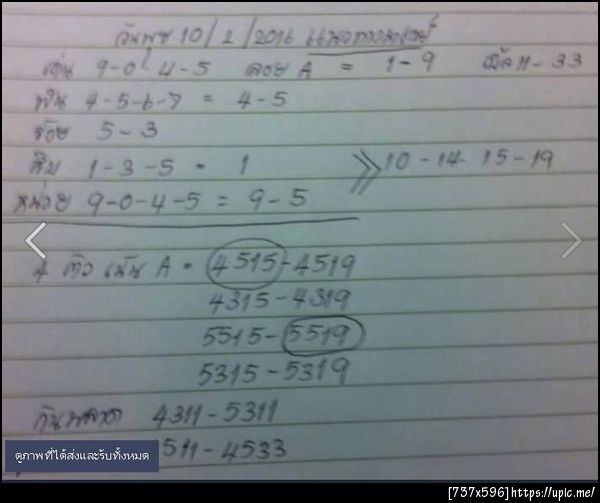 วันพุธ 10/2/2016 แนวทางมาเลย์
เด่น 9-0-4-5 ลอย A = 1-9 เบิ้ล 11-33
พัน 4-5-6-7 = 4-5
ร้อย 5-3
สิบ 1-3-5 = 1 10-14-15-19
หน่วย 9-0-4-5 = 9-5
4 ตัว เน้น A = 4515-4519
4315-4319
5515-5519
5315-5319
กันพลาด 4311-5311
511-4533
ดูภาพที่ได้ส่งและรับทั้งหมด
[737x596]https://upic.me/